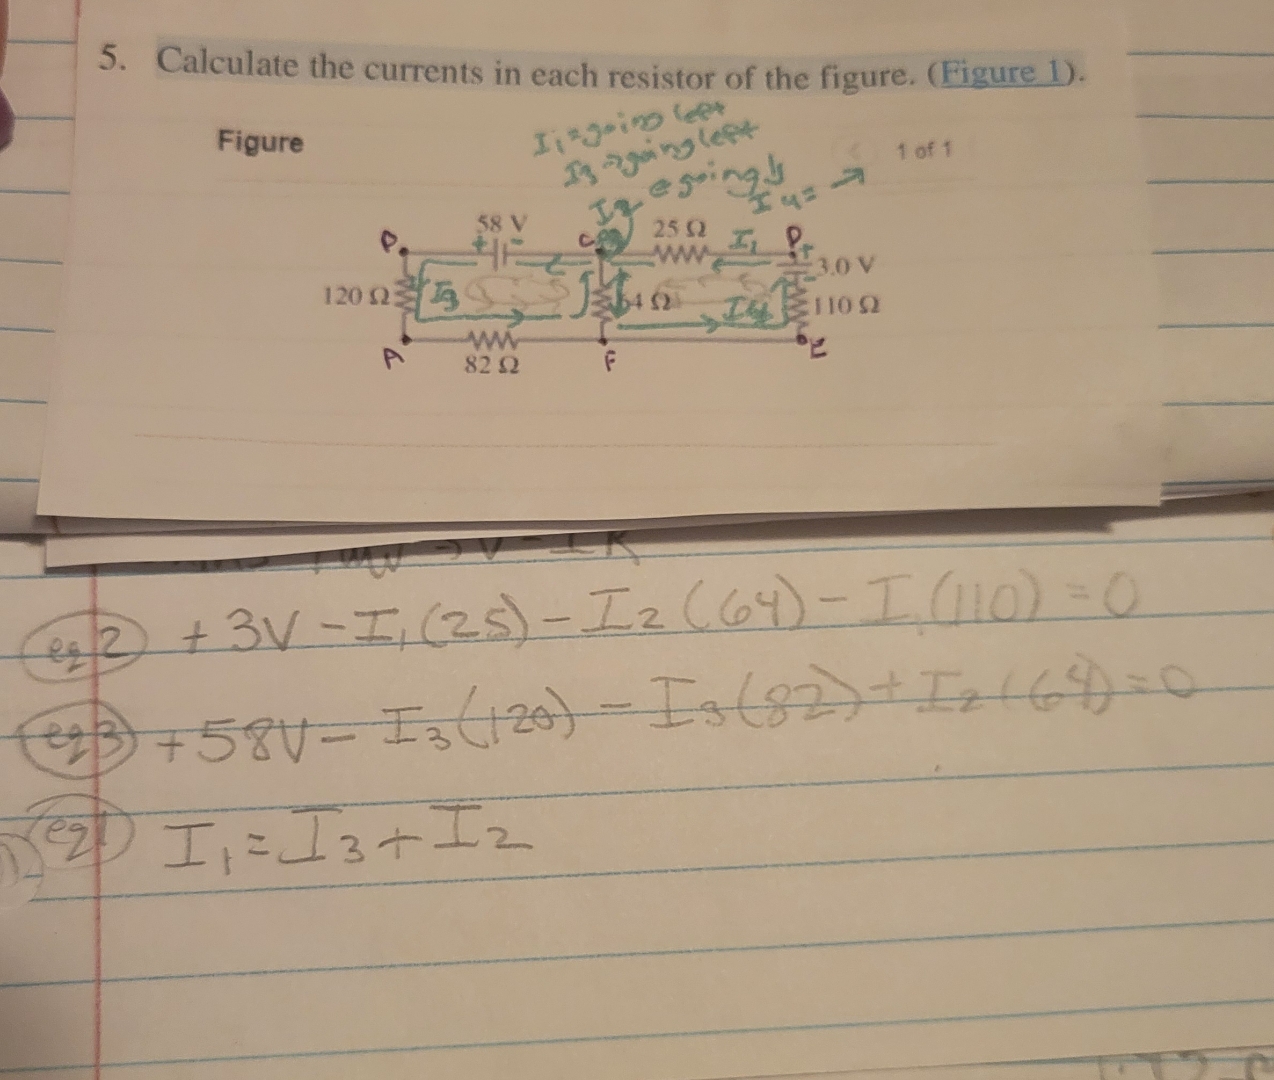 5. Calculate the currents in each resistor of the figure. (Figure 1).
Figure
1 of 1
I₁=going left
I3 going left
I2 going ↓
I4= →
58 V
25 Ω
I₁
C
3.0 V
120 Ω
I3
4 Ω
I4
110 Ω
A
82 Ω
F
E
V = IR
eq 2 + 3V - I₁(25) - I2(64) - I₁(110) = 0
eq 3 + 58V - I3(120) - I3(82) + I2(64) = 0
eq 1 I₁ = I3 + I2